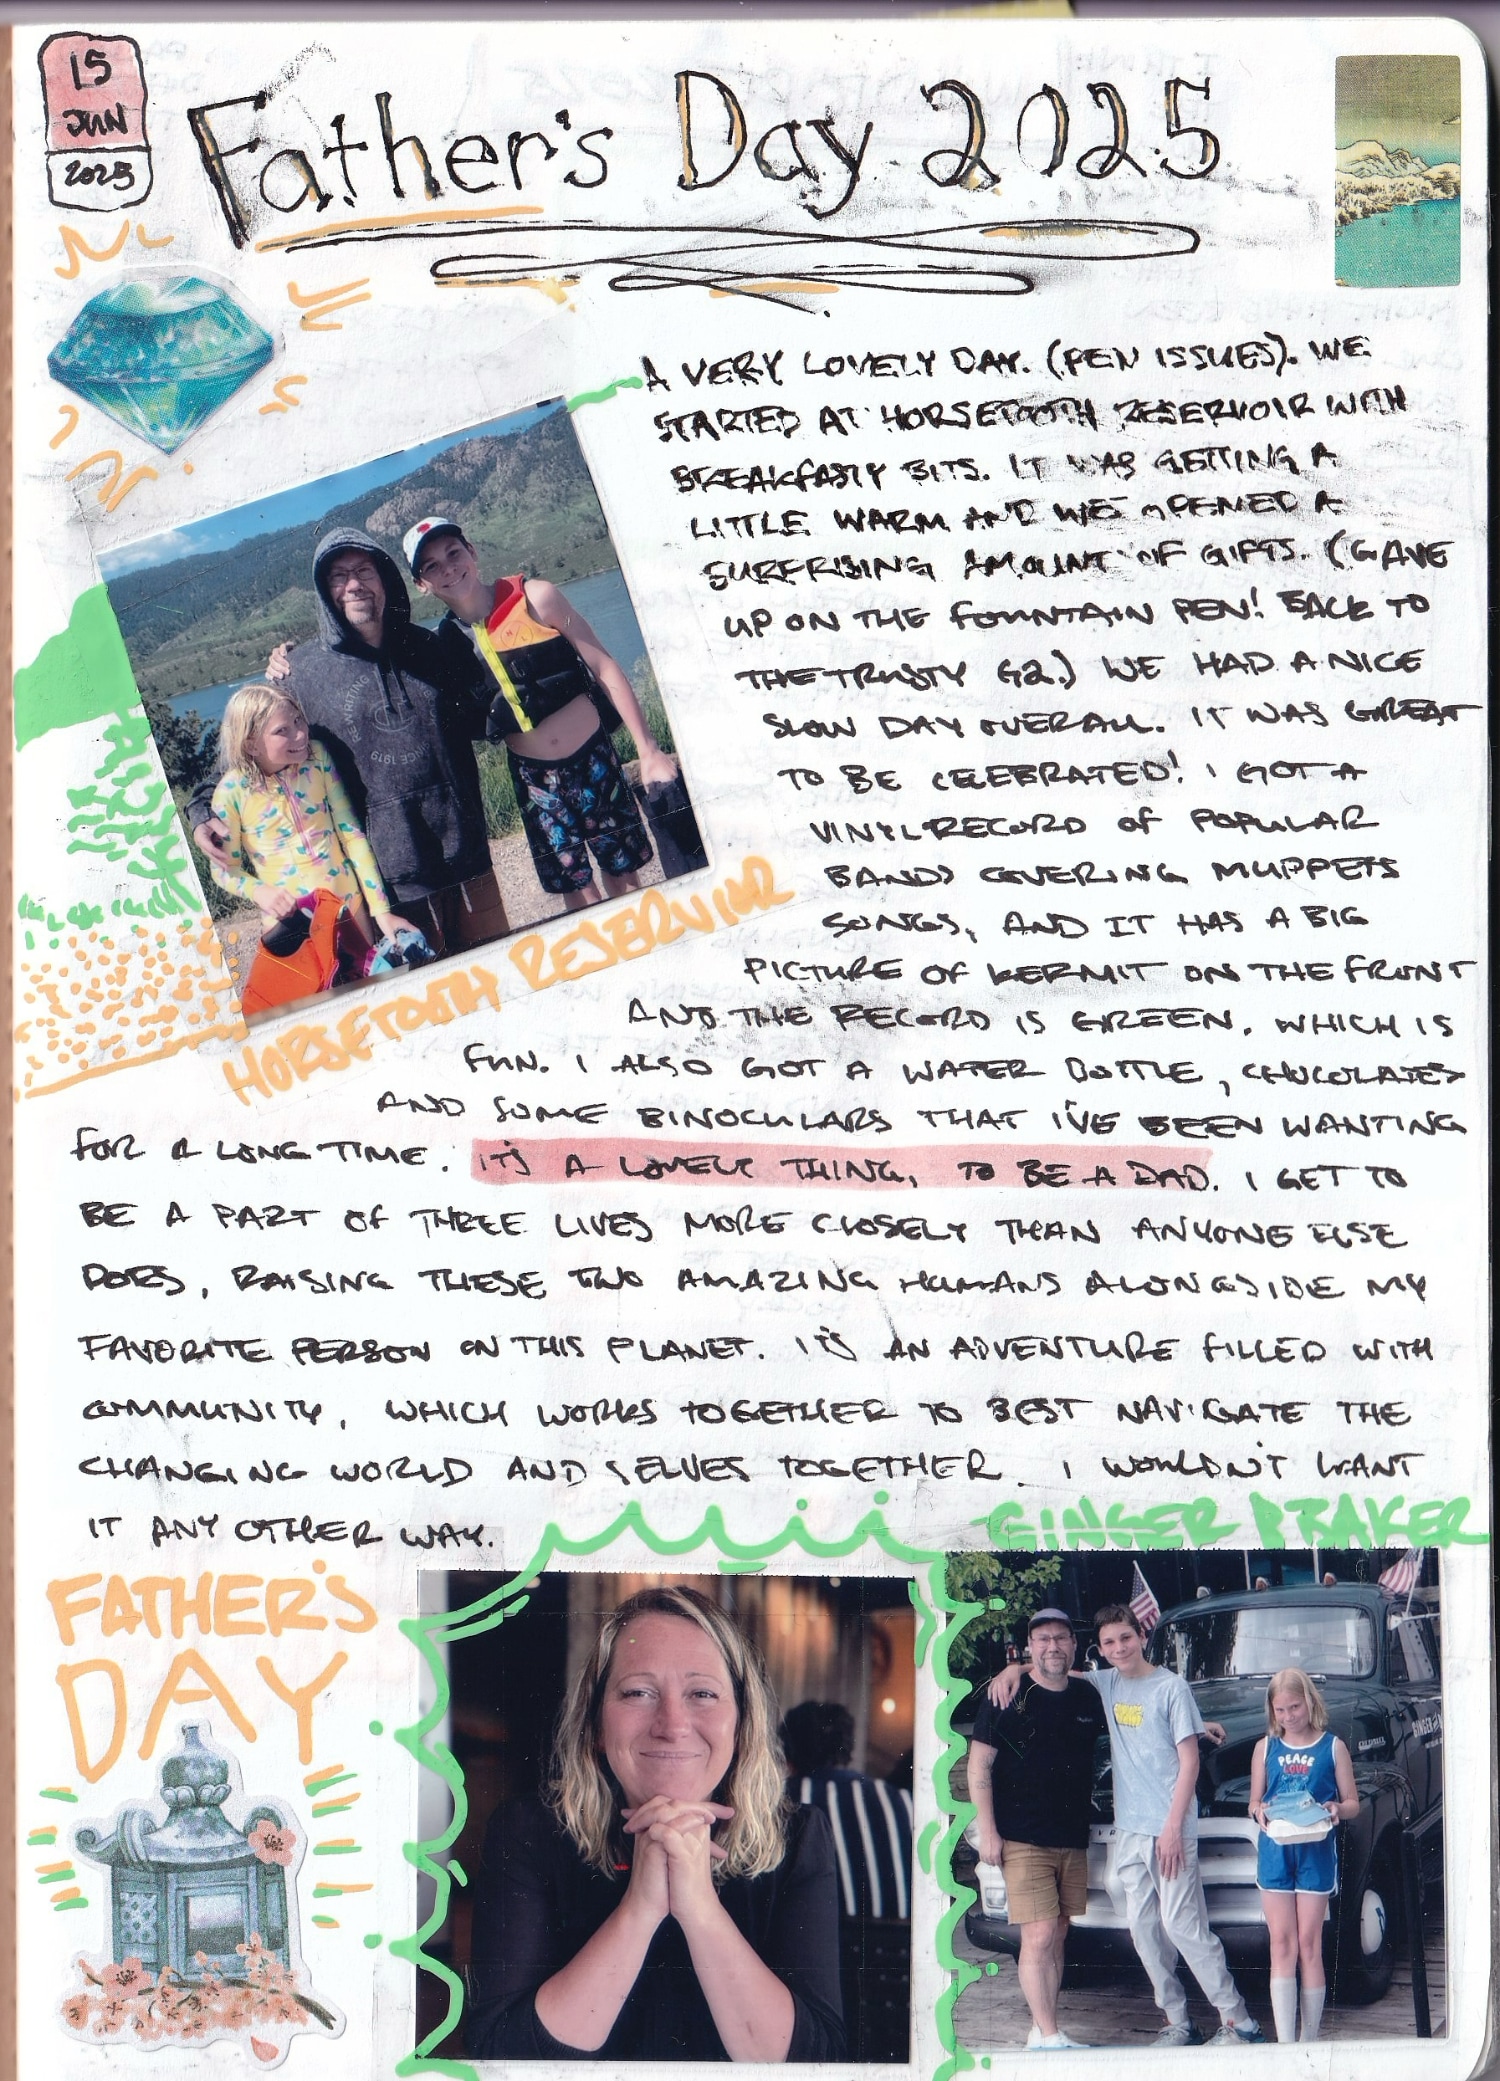 15
JUN
2025
Father's Day 2025
A VERY LOVELY DAY. (PEN ISSUES). WE
STARTED AT HORSETOOTH RESERVOIR WITH
BREAKFASTY BITS. IT WAS GETTING A
LITTLE WARM AND WE OPENED A
SURPRISING AMOUNT OF GIFTS. (GAVE
UP ON THE FOUNTAIN PEN! BACK TO
THE TRUSTY G2.) WE HAD A NICE
SLOW DAY OVERALL. IT WAS GREAT
TO BE CELEBRATED! I GOT A
VINYL RECORD OF POPULAR
BANDS COVERING MUPPETS
SONGS, AND IT HAS A BIG
PICTURE OF KERMIT ON THE FRONT
AND THE RECORD IS GREEN. WHICH IS
FUN. I ALSO GOT A WATER BOTTLE, CHOCOLATES
AND SOME BINOCULARS THAT I'VE BEEN WANTING
FOR A LONG TIME. IT'S A LOVELY THING, TO BE A DAD. I GET TO
BE A PART OF THREE LIVES MORE CLOSELY THAN ANYONE ELSE
DOES, RAISING THESE TWO AMAZING HUMANS ALONGSIDE MY
FAVORITE PERSON ON THIS PLANET. IT'S AN ADVENTURE FILLED WITH
COMMUNITY, WHICH WORKS TOGETHER TO BEST NAVIGATE THE
CHANGING WORLD AND SELVES TOGETHER. I WOULDN'T WANT
IT ANY OTHER WAY.
HORSETOOTH RESERVIOR
REWRITING
SINCE 1919
GINGER & BAKER
FATHER'S
DAY
PEACE
LOVE